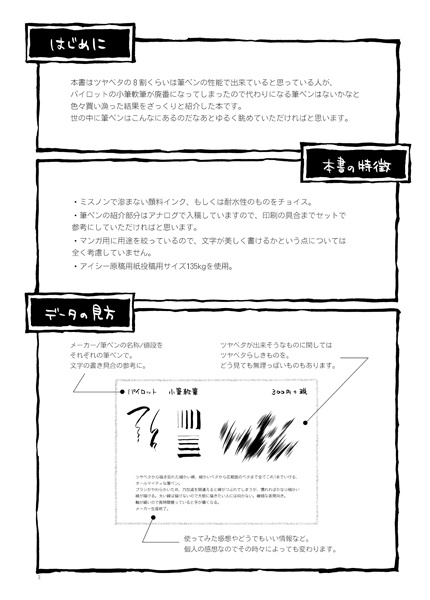 はじめに
本書はツヤベタの8割くらいは筆ペンの性能で出来ていると思っている人が、
パイロットの小筆軟筆が廃番になってしまったので代わりになる筆ペンはないかなと
色々買い漁った結果をざっくりと紹介した本です。
世の中に筆ペンはこんなにあるのだなあとゆるく眺めていただければと思います。
本書の特徴
・ミスノンで滲まない顔料インク、もしくは耐水性のものをチョイス。
・筆ペンの紹介部分はアナログで入稿していますので、印刷の具合までセットで
参考にしていただければと思います。
・マンガ用に用途を絞っているので、文字が美しく書けるかという点については
全く考慮していません。
・アイシー原稿用紙投稿用サイズ135kgを使用。
データの見方
メーカー/筆ペンの名称/値段を
それぞれの筆ペンで。
文字の書き具合の参考に。
ツヤベタが出来そうなものに関しては
ツヤベタらしきものを。
どう見ても無理っぽいものもあります。
パイロット 小筆軟筆 300円+税
メーカー生産終了。
使ってみた感想やどうでもいい情報など。
個人の感想なのでその時々によっても変わります。
3